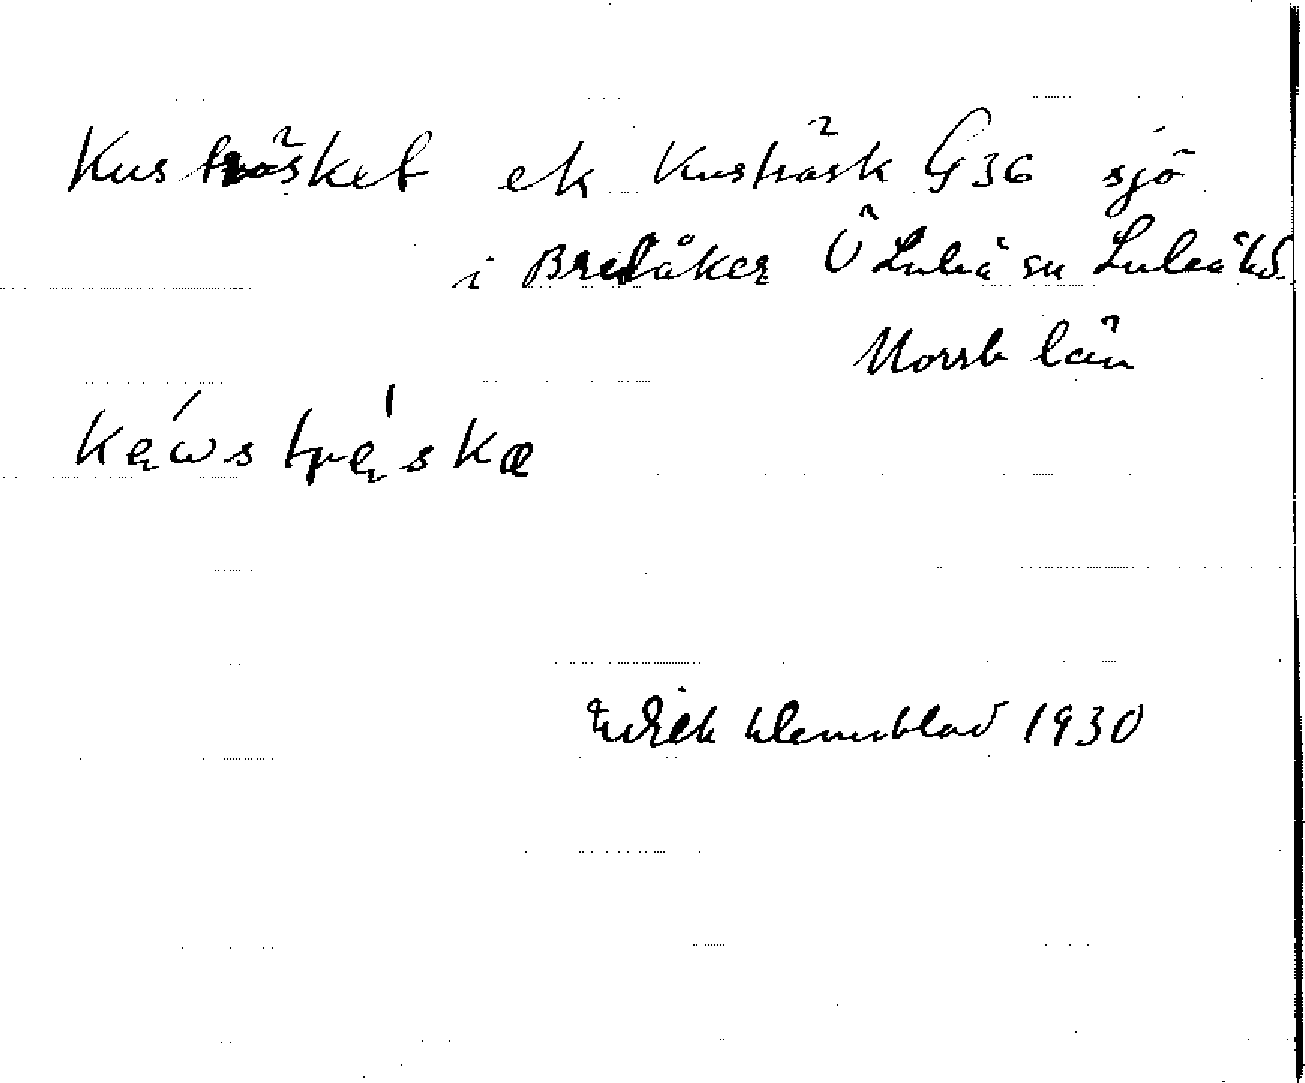 Kusträsket ek Kusträsk G36 sjö
i Bredåker Ö Luleå sn Luleå hd
Norrb län
Erik Wennblad 1930